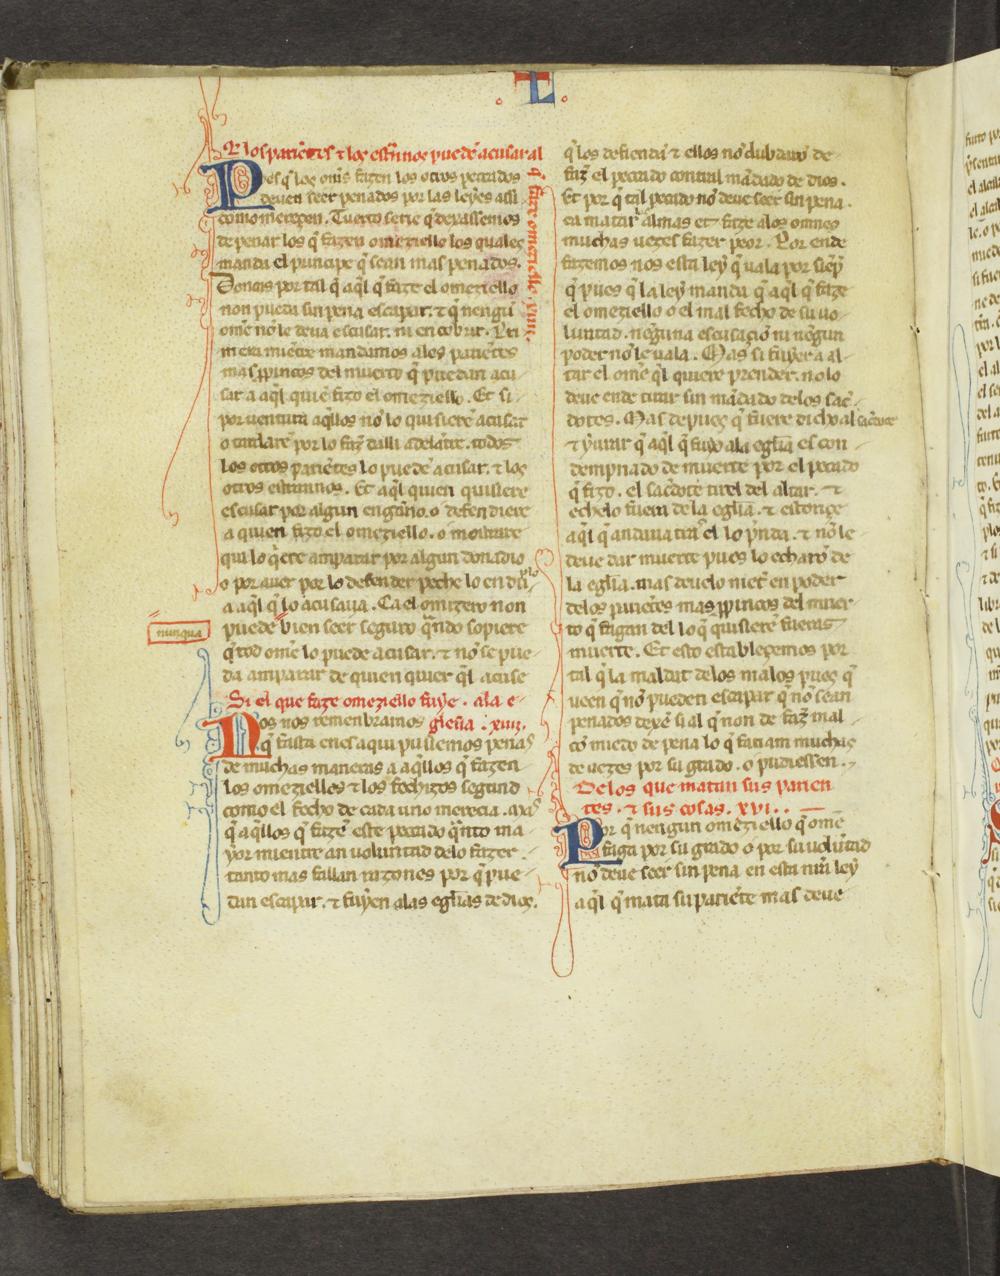 L
Q̄ los pariẽtes ⁊ los estrãnos puedẽ acusar al
q̄ faze omeziello. xuij.
Pves q̄ los omes fazen los otros pecados
deven seer penados por las leyes assi
como merecen. Tuerto serie q̄ dexassemos
de penar los q̄ fazen omeziello los quales
manda el principe q̄ sean mas penados.
Donas por tal q̄ aq̄l q̄ faze el omeziello
non pueda sin pena escapar. ⁊ q̄ nengũ
omẽ nõ le deva escusar. ni encobrir. Pri
mera miẽtre mandamos a los pariẽtes
mas ꝓpincos del muerto q̄ puedan acu
sar a aq̄l quiẽ fizo el omeziello. Et si
por ventura aq̄llos nõ lo quisierẽ acusar
o tardarẽ por lo faz̉ dalli adelãtre. todos
los otros pariẽtes lo puedẽ acusar. ⁊ los
otros estrannos. Et aq̄l quien quisiere
escusar por algun engãno. o defendiere
a quien fizo el omeziello. o mostrare
qui lo q̉ere amparar por algun donadio
o por aver por lo defender peche lo en dup̉lo
a aq̄l q̄ lo acusava. Ca el omizero non
nunqua
puede bien seer seguro q̃ndo sopiere
q̄ tod omẽ lo puede acusar. ⁊ nõ se pue
da amparar de quien quier q̄l acuse
Si el que faze omeziello fuye. ala e-
glesia. xuiij.
Nos nos remenbramos
q̄ fasta en es aqui pusiemos penas
de muchas maneras a aq̄llos q̄ fazen
los omeziellos ⁊ los fechizos segund
como el fecho de cada uno merecia. mas
q̄ aq̄llos q̄ fazẽ este pecado q̃nto ma
yor mientre an voluntad delo fazer.
tanto mas fallan razones por q̄ pue
dan escapar. ⁊ fuyen alas egl̃ias de dios.
q̄ los defiendã ⁊ ellos nõ dubdarõ de
faz̉ el pecado contral mãdado de dios.
Et por q̄ tal pecado nõ deve seer sin pena.
en matar almas et faze alos omnes
muchas vezes fazer peor. Por ende
fazemos nos esta ley q̄ vala por siẽp̉
q̄ pues q̄ la ley manda q̄ aq̄l q̄ faze
el omeziello o el mal fecho de su vo-
luntad. nẽguna escusaciõ ni nẽgun
poder nõ le vala. Mas si fuyere a al-
tar el omẽ q̄l quiere prender. no lo
deve ende tirar sin mãdado delos sac̉
dotes. Mas depues q̄ fuere dicho al sac̉dote
⁊ yurar q̄ aq̄l q̄ fuyo ala egl̃ia es con
dempnado de muerte por el pecado
q̄ fizo. el sac̉dote tirel del altar. ⁊
echelo fuera de la egl̃ia. ⁊ estonçe
aq̄l q̄ andava tras el lo p̉nda. ⁊ nõ le
deve dar muerte pues lo echarõ de
la egl̃ia. mas develo met̉ en poder
delos pariẽtes mas ꝓpincos del muer-
to q̄ fagan del lo q̄ quisierẽ fueras
muerte. Et esto establecemos por
tal q̄ la maldat delos malos pues q̄
veen q̄ nõ pueden escapar q̄ nõ sean
penados dexẽ si al q̄ non de faz̉ mal
cõ miedo de pena lo q̄ fariam muchas
de vezes por su grado. o pudiessen.
Delos que matan sus parien
tes. ⁊ sus cosas. xvi.
Por q̄ nengun omeziello q̄ omẽ
faga por su grado o por su volũtad
nõ deve seer sin pena en esta nr̃a ley
aq̄l q̄ mata su pariẽte mas deve